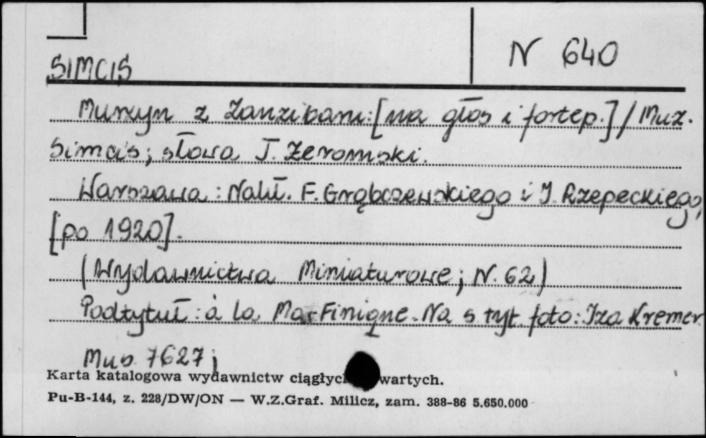 N 640
SIMCIS
Murzyn z Zanzibaru: [na głos i fortep.] / Muz.
Simcis; słowa J. Żeromski.
Warszawa: Nakł. F. Grąbczewskiego i J. Rzepeckiego,
[po 1920].
(Wydawnictwa Miniaturowe; N. 62)
Podtytuł: à la Martinique. Na s tyt. foto: Iza Kremer
Mus. 7627;
Karta katalogowa wydawnictw ciągłych wartych.
Pu-B-144, z. 228/DW/ON — W.Z.Graf. Milicz, zam. 388-86 5.650.000